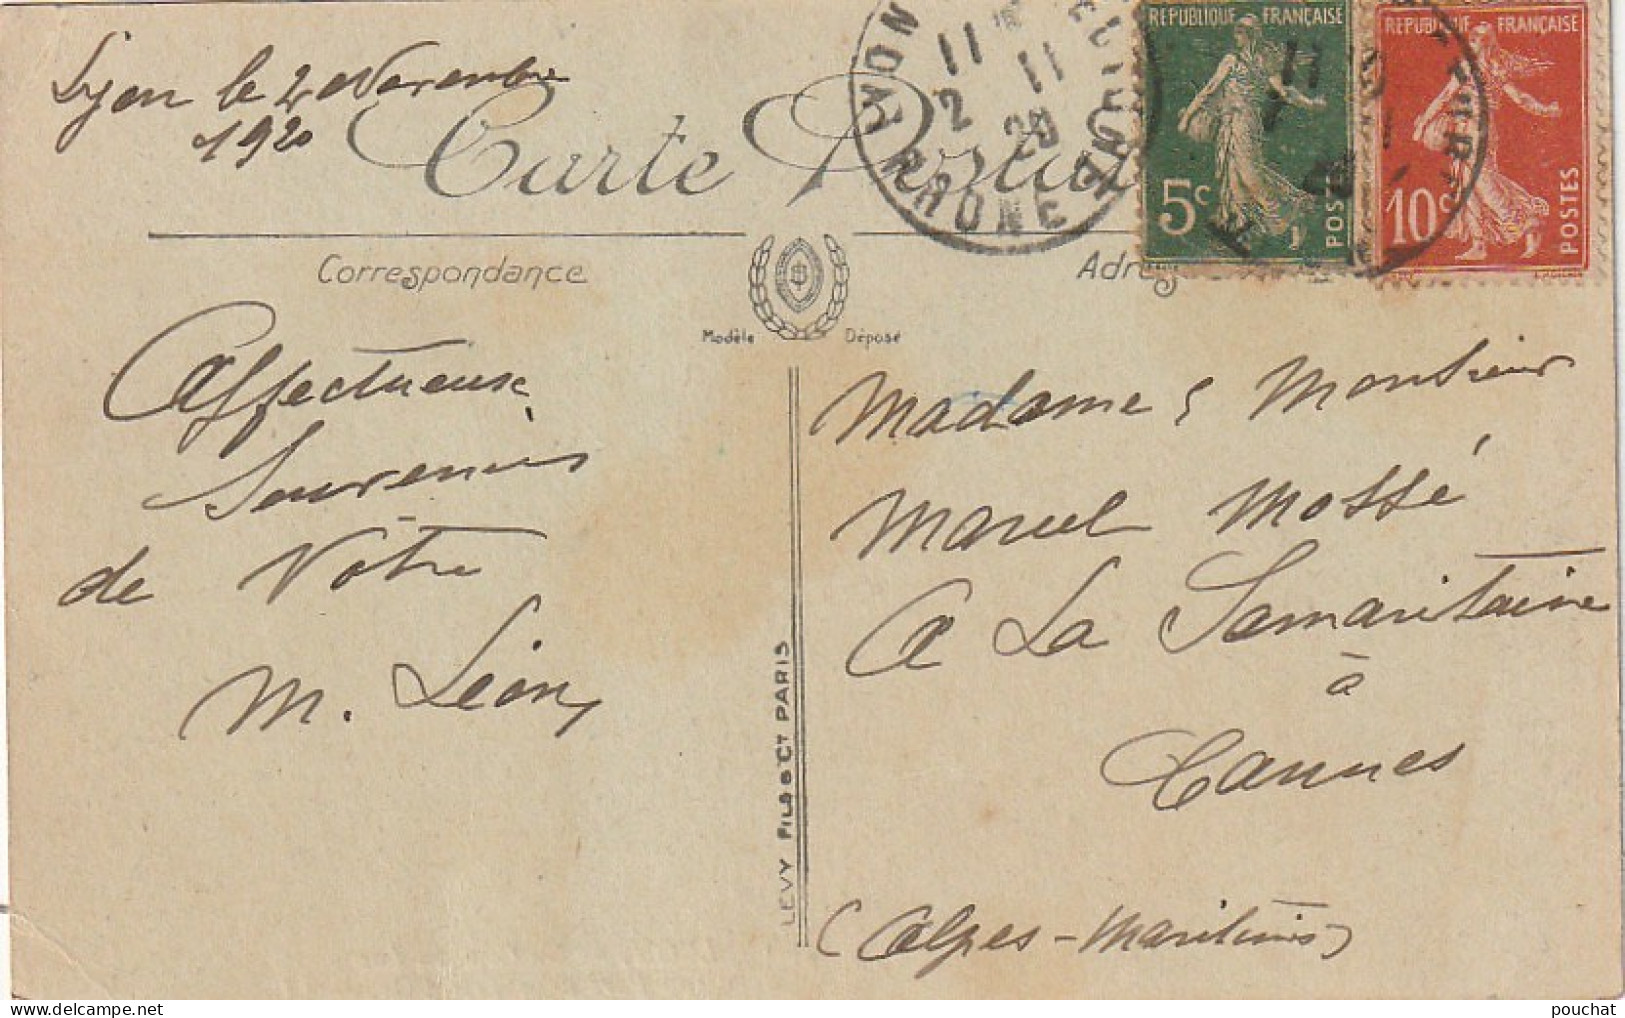 Lyon le 2 Novembre
1920
Carte Postale
LYON
RHONE
11
2 11
20
REPUBLIQUE FRANÇAISE
5c
POSTES
REPUBLIQUE FRANÇAISE
10c
POSTES
Correspondance
Modèle Déposé
Affectueux
Souvenirs
de Vôtre
M. Léon
LEVY FILS & Cie PARIS
Madame & Monsieur
Marcel Mossé
A La Samaritaine
à
Cannes
(Alpes-Maritimes)
pouchat